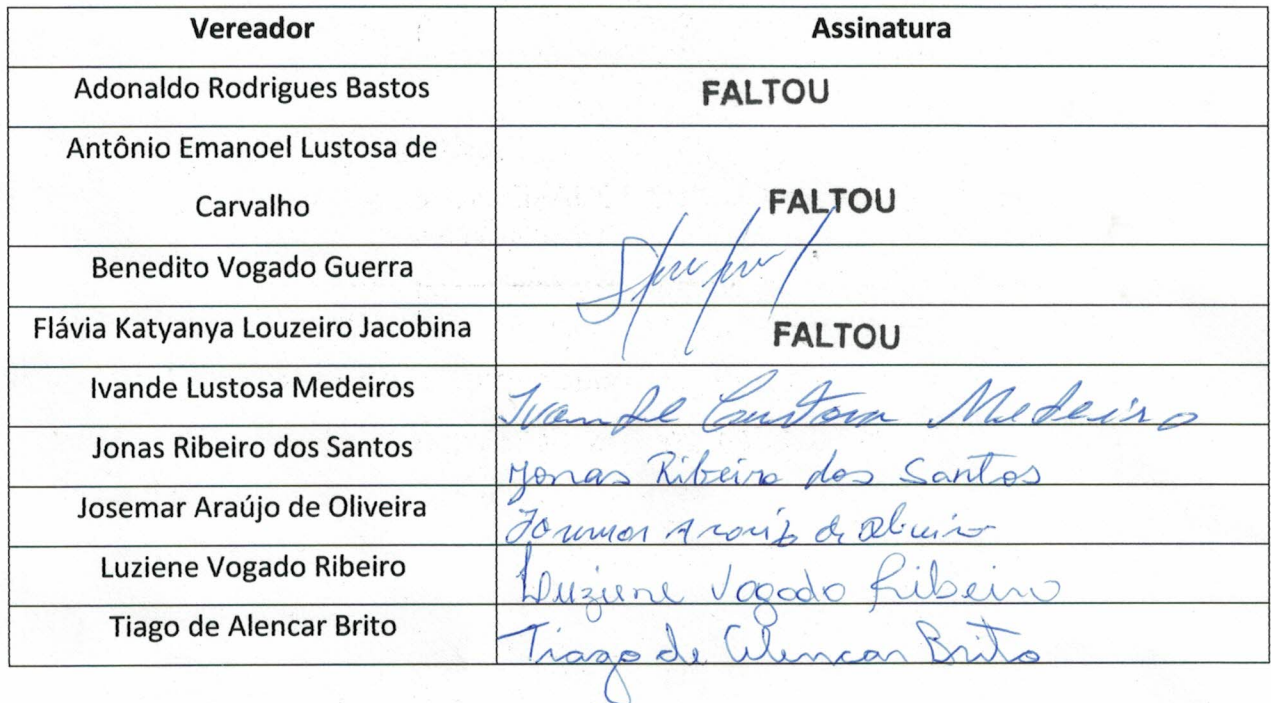 Vereador Assinatura
Adonaldo Rodrigues Bastos FALTOU
Antônio Emanoel Lustosa de
Carvalho FALTOU
Benedito Vogado Guerra
Flávia Katyanya Louzeiro Jacobina FALTOU
Ivande Lustosa Medeiros Ivande Lustosa Medeiro
Jonas Ribeiro dos Santos Jonas Ribeiro dos Santos
Josemar Araújo de Oliveira Josemar Araújo de Oliveira
Luziene Vogado Ribeiro Luziene Vogado Ribeiro
Tiago de Alencar Brito Tiago de Alencar Brito